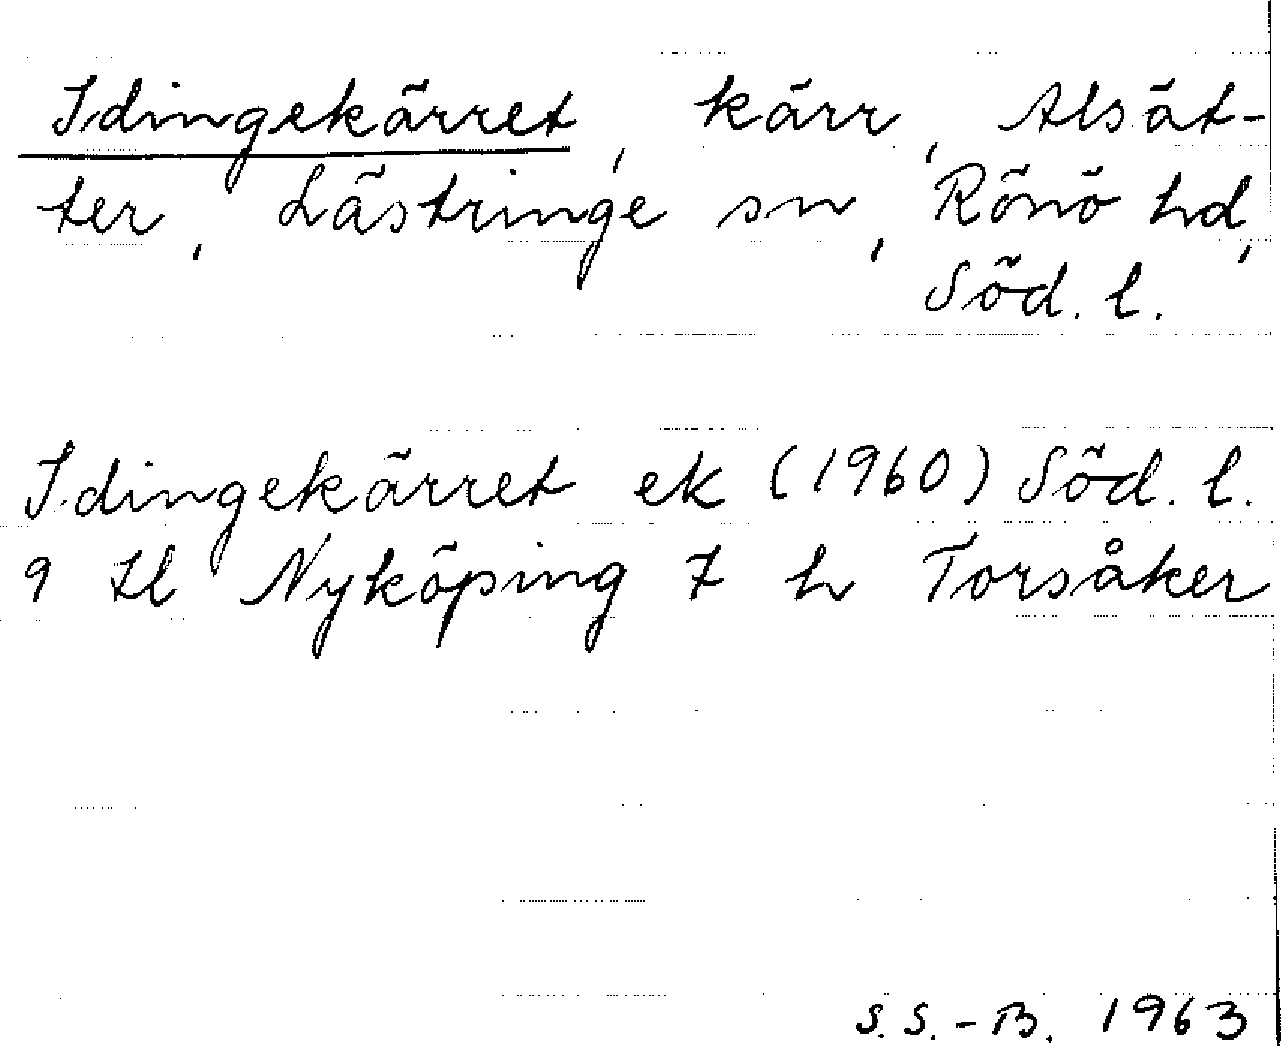 Idingekärret, kärr, Alsät-
ter, Lästringe sn, Rönö hd,
Söd. l.
Idingekärret ek (1960) Söd. l.
9 Il Nyköping 7 h Torsåker
S.S.-B. 1963